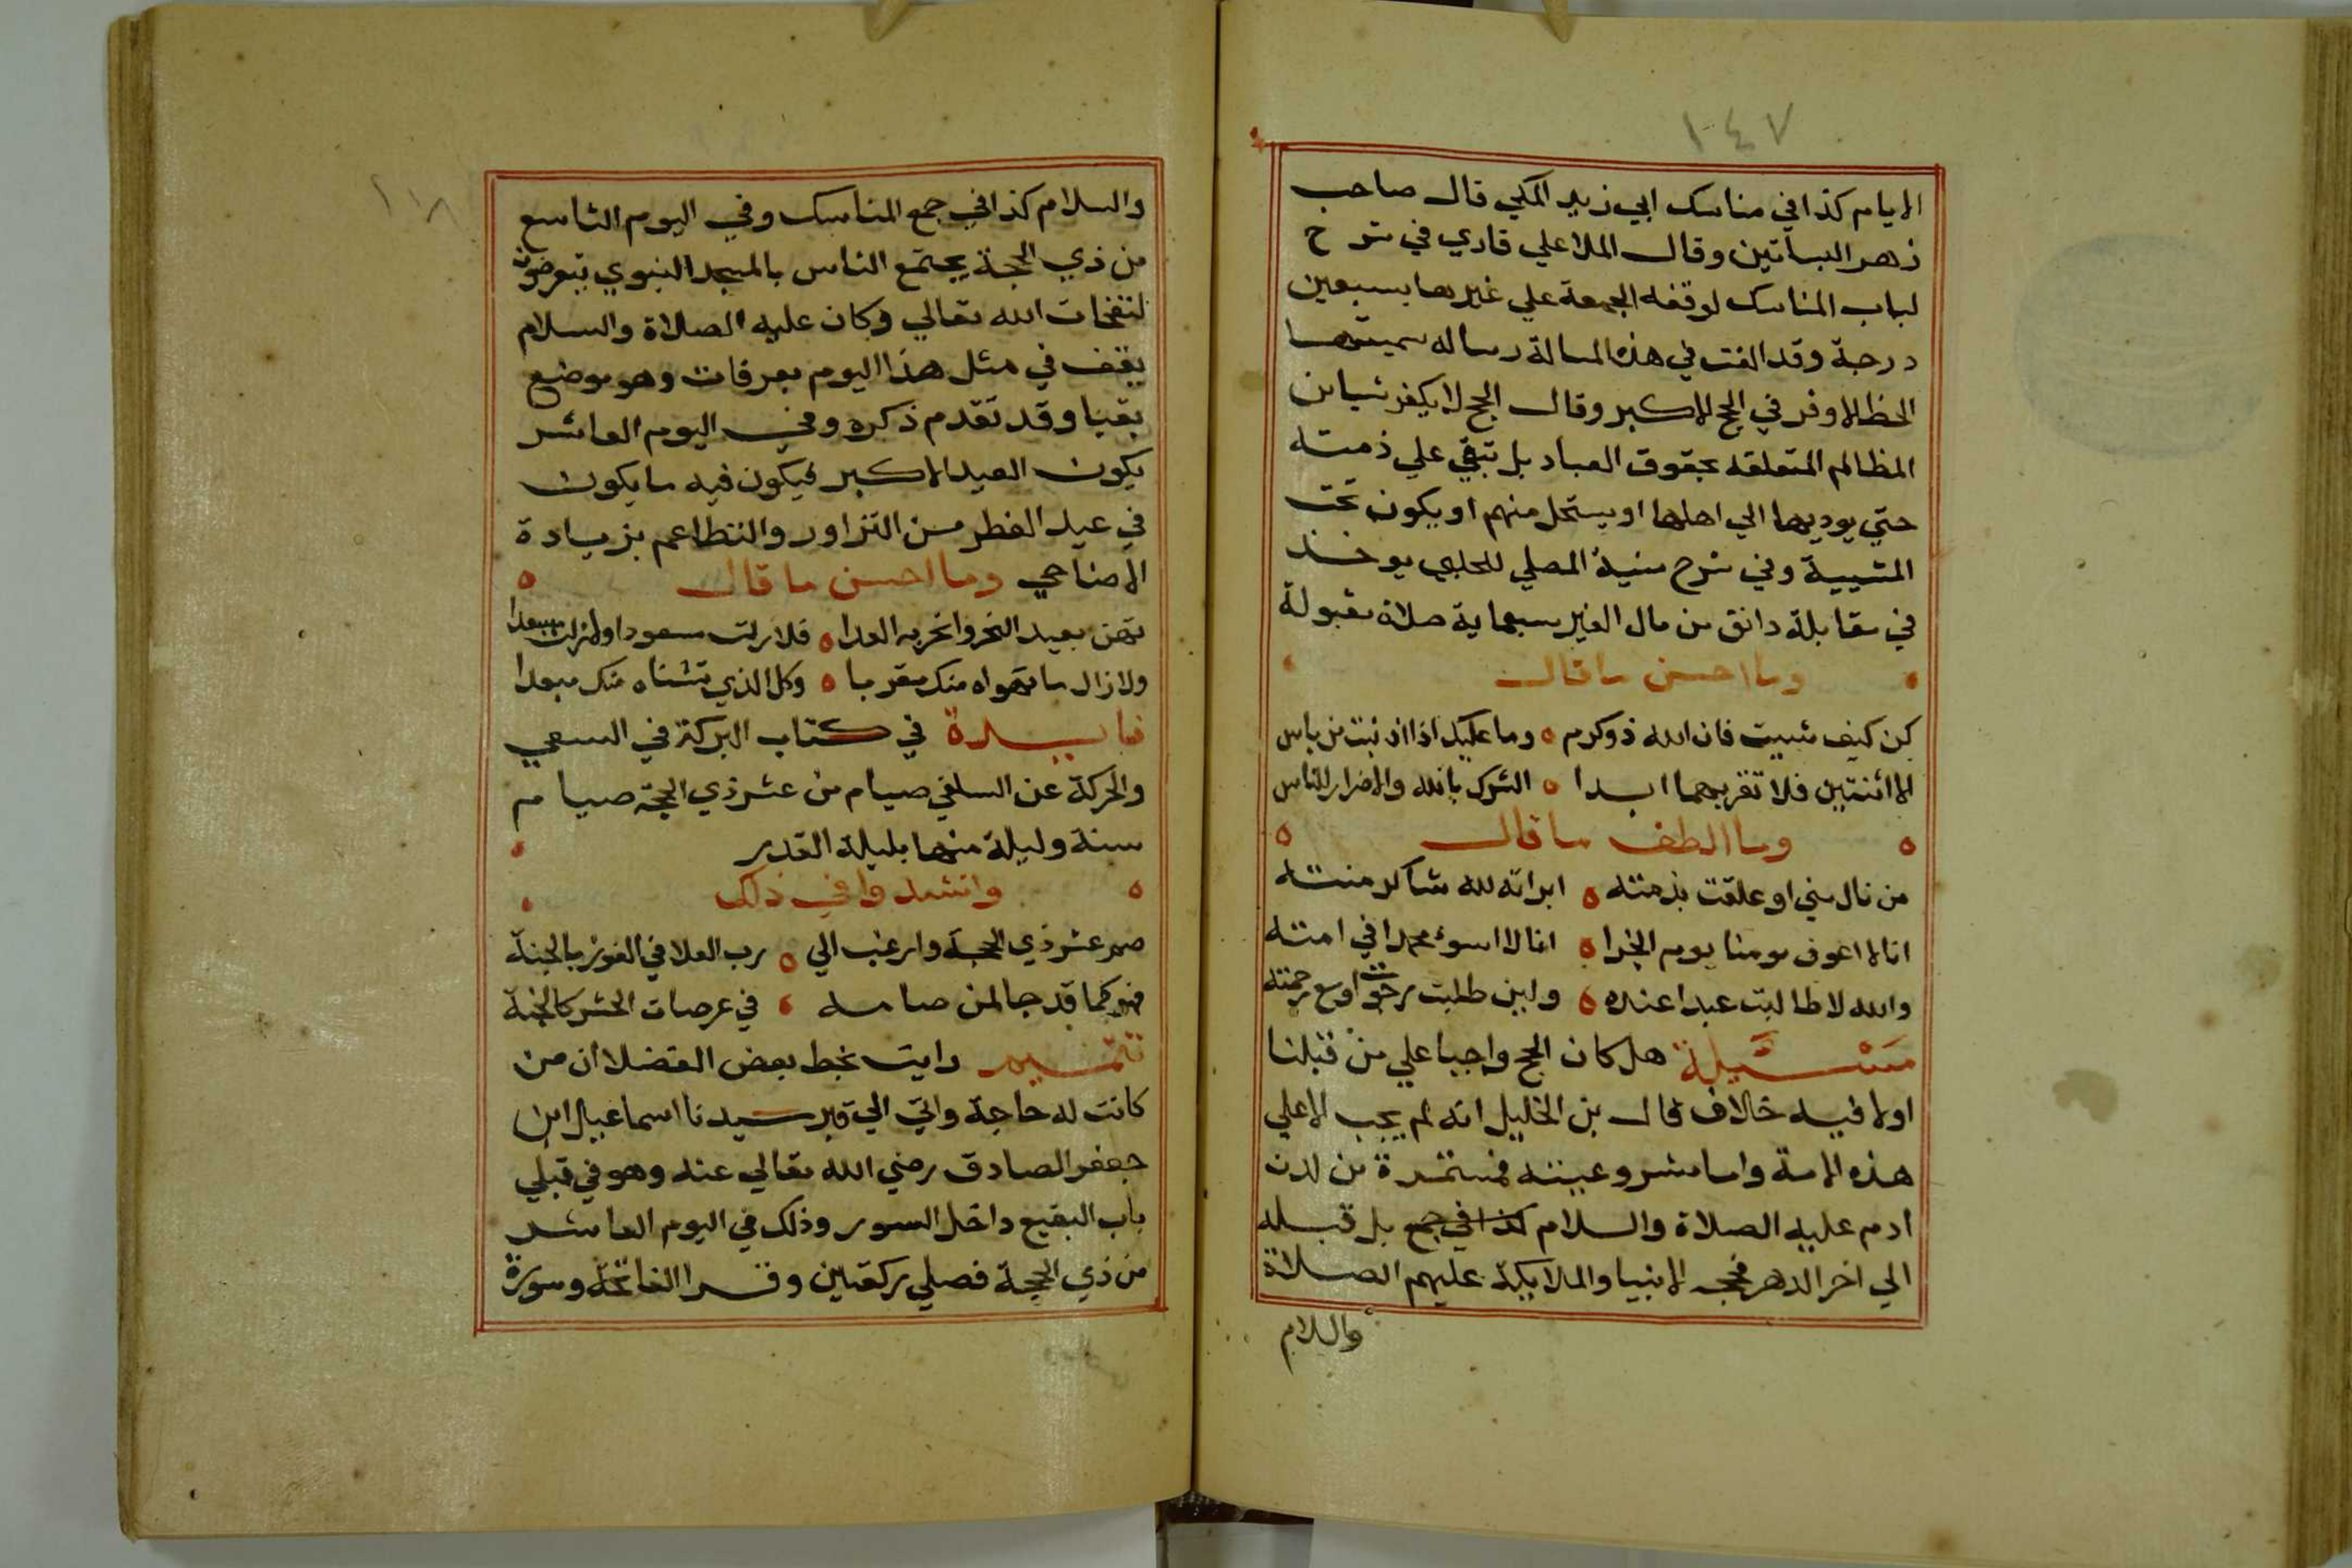 ١٠٤٧
الايام كذا في مناسك ابي زيد المكي قال صاحب
زهر البساتين وقال الملا علي قاري في شرح
لباب المناسك لوقفه الجمعة علي غيرها بسبعين
درجة وقد الفت في هذه المسالة رساله سميتها
الحظ الاوفر في الحج الاكبر وقال الحج لا يكفر شيا من
المظالم المتعلقه بحقوق العباد بل تبقي علي ذمته
حتي يوديها الي اهلها او يستحل منهم او يكون تحت
المشيية وفي شرح منية المصلي للحلبي يوخذ
في مقابلة دانق من مال الغير سبعماية صلاة مقبولة
وما احسن ما قال
كن كيف شييت فان الله ذو كرم ٥ وما عليك اذا اذنبت من باس
الا اثنتين فلا تقربهما ابدا ٥ الشرك بالله والاضرار للناس
٥ وما الطف ما قال ٥
من نال مني او علقت بذمته ٥ ابراته لله شاكر منته
انا لا اعوق مومنا يوم الجزا ٥ انا لا اسوء محمدا في امته
والله لا طالبت عبدا عنده ٥ ولين طلبت رجوت اوسع رحمته
مسئيلة هل كان الحج واجبا علي من قبلنا
اولا فيه خلاف قال بن الخليل انه لم يجب الا علي
هذه الامة واما مشروعيته فمستمرة من لدن
ادم عليه الصلاة والسلام كذا في جمع بل قبله
الي اخر الدهر فحجه الانبيا والملايكة عليهم الصلاة
والسلام
والسلام كذا في جمع المناسك وفي اليوم التاسع
من ذي الحجة يجتمع الناس بالمسجد النبوي يتعرضون
لنفحات الله تعالي وكان عليه الصلاة والسلام
يقف في مثل هذا اليوم بعرفات وهو موضع
بقبا وقد تقدم ذكره وفي اليوم العاشر
يكون العيد الاكبر فيكون فيه ما يكون
في عيد الفطر من التزاور والتطاعم بزيادة
الاضاحي وما احسن ما قال ٥
تهن بعيد النحر وانحر به العدا ٥ فلا زلت مسعودا ولا زلت مسعدا
ولا زال ما تهواه منك مقربا ٥ وكل الذي تشناه منك مبعدا
فايدة في كتاب البركة في السعي
والحركة عن السلفي صيام من عشر ذي الحجة صيام
سنة وليلة منها بليلة القدر
٥ وانشدوا في ذلك
صم عشر ذي الحجة وارغب الي ٥ رب العلا في الفوز بالجنة
فهو كما قد جا لمن صامه في عرصات الحشر كالجنة
تتميم رايت بخط بعض الفضلا ان من
كانت له حاجة واتي الي قبر سيدنا اسماعيل ابن
جعفر الصادق رضي الله تعالي عنه وهو في قبلي
باب البقيع داخل السور وذلك في اليوم العاشر
من ذي الحجة فصلي ركعتين وقرا الفاتحة وسورة